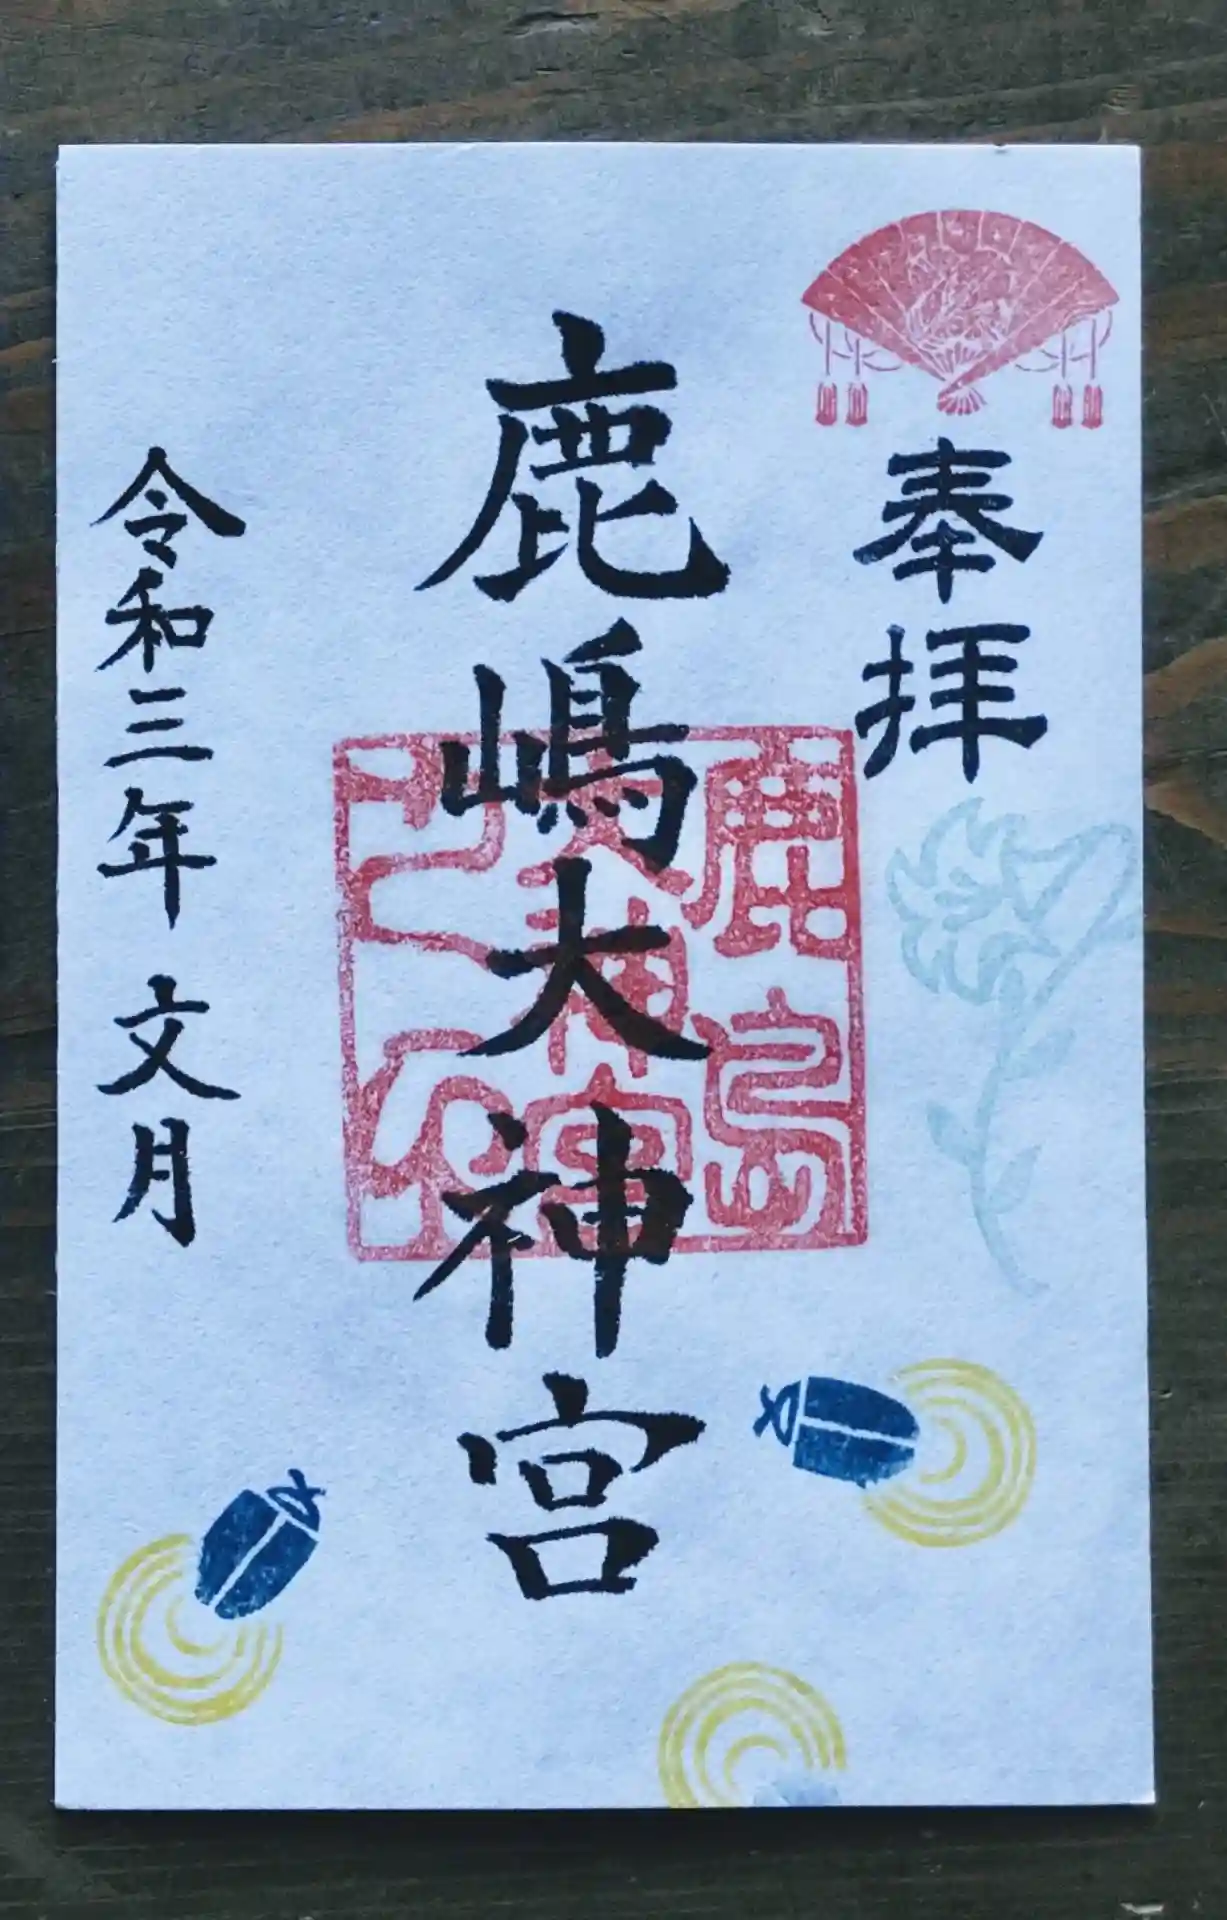 奉拝
鹿嶋大神宮
鹿島
大神宮
之印
令和三年 文月